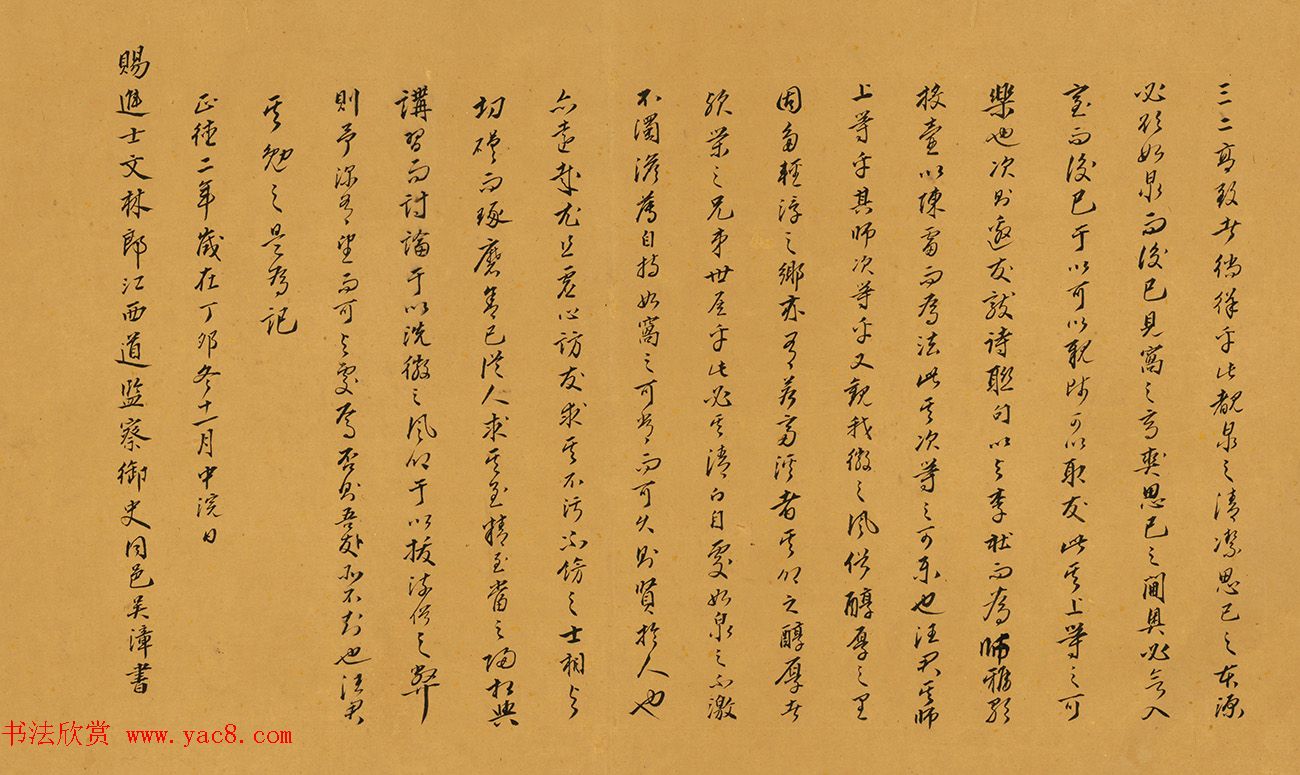 三二高致者徜徉乎此睹泉之清潔思己之本源
必欲如泉而後已見窩之高爽思己之閫奥必欲入
室而後已于以可以親師可以取友此其上等之可
樂也次則邀友敲詩聯句以與李杜而為
投壺以陳雷而為法此其次等之可樂也汪君其師
上等乎其師次等乎又觀我徽之風俗醇厚之里
固多輕浮之鄉亦有若富溪者其俗之醇厚者
欤榮之兄弟世居乎此必其清白自處如泉之不激
不濁滋舊自持如窩之可常而可久則賢於人也
亦遠哉尤且虛心訪友求其不污不飾之士相與
切磋而琢磨舍己從人求其至精至當之歸相與
講習而討論于以洗徽之風以于以拔流俗之弊
則予深有望而可與處焉否則吾処所不知也汪君
其勉之是為記
正德二年歲在丁卯冬十一月中浣日
賜進士文林郎江西道監察御史同邑吴漳書
书法欣赏 www.yac8.com